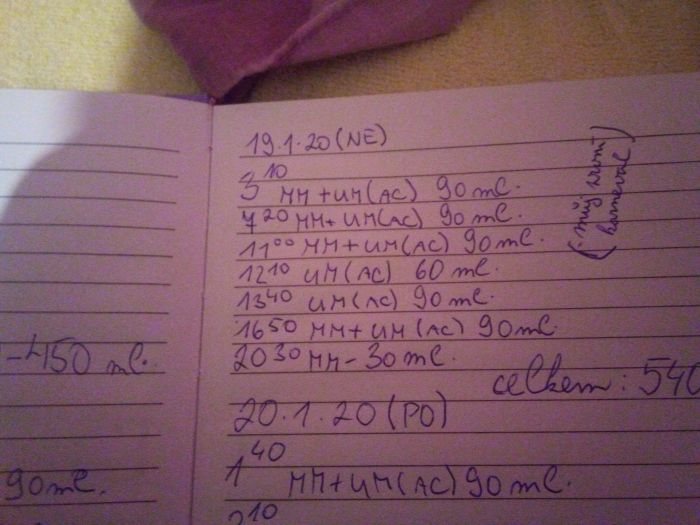 19.1.20 (NE)
3 10 MM + UM (AC) 90 ml.
7 20 MM + UM (AC) 90 ml.
11 00 MM + UM (AC) 90 ml.
12 10 UM (AC) 60 ml.
13 40 UM (AC) 90 ml.
16 50 MM + UM (AC) 90 ml.
20 30 MM - 30 ml.
celkem : 540
(můj
karneval)
20.1.20 (PO)
1 40
MM + UM (AC) 90 ml.
10
-450 ml.
90 ml.